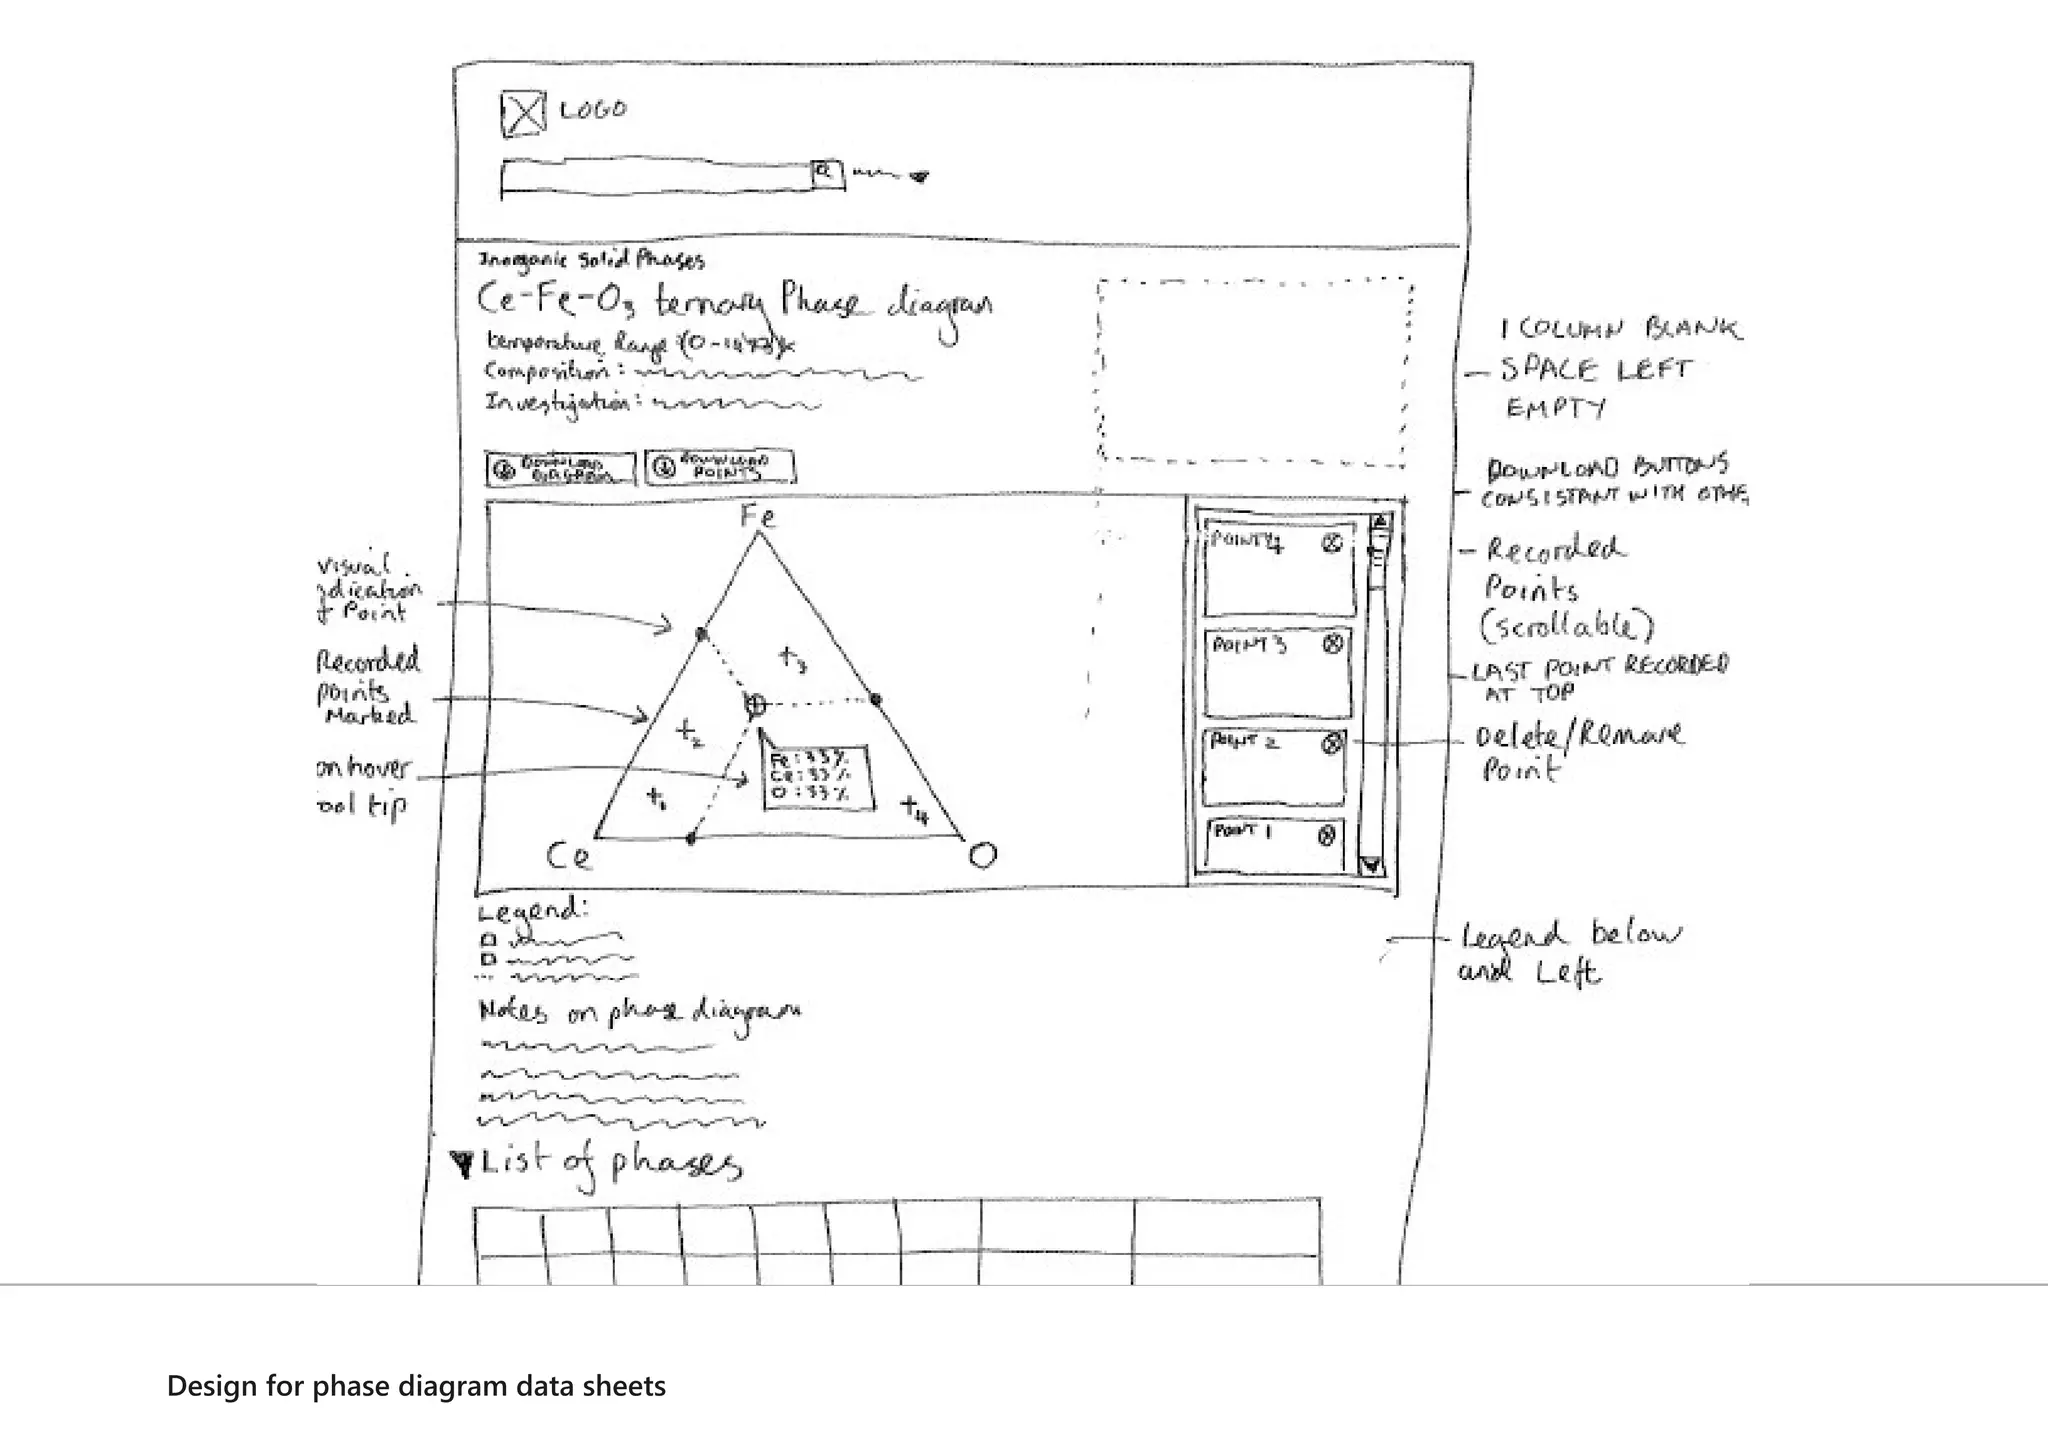 LOGO
Inorganic Solid Phases
Ce-Fe-O3 ternary Phase diagram
temperature Range (0-1473)K
Composition:
Investigation:
DOWNLOAD DIAGRAM
DOWNLOAD POINTS
1 COLUMN BLANK
SPACE LEFT
EMPTY
DOWNLOAD BUTTONS
CONSISTANT WITH OTHE
Recorded
Points
(scrollable)
LAST POINT RECORDED
AT TOP
Delete/Remove
Point
visual
dication
f Point
Recorded
points
Marked
on hover
ool tip
Fe
+3
+2
+1
+4
Fe:33%
Ce:33%
O:33%
Ce
O
POINT 4
POINT 3
POINT 2
POINT 1
Legend:
Legend below
and Left
Notes on phase diagram
List of phases
Design for phase diagram data sheets